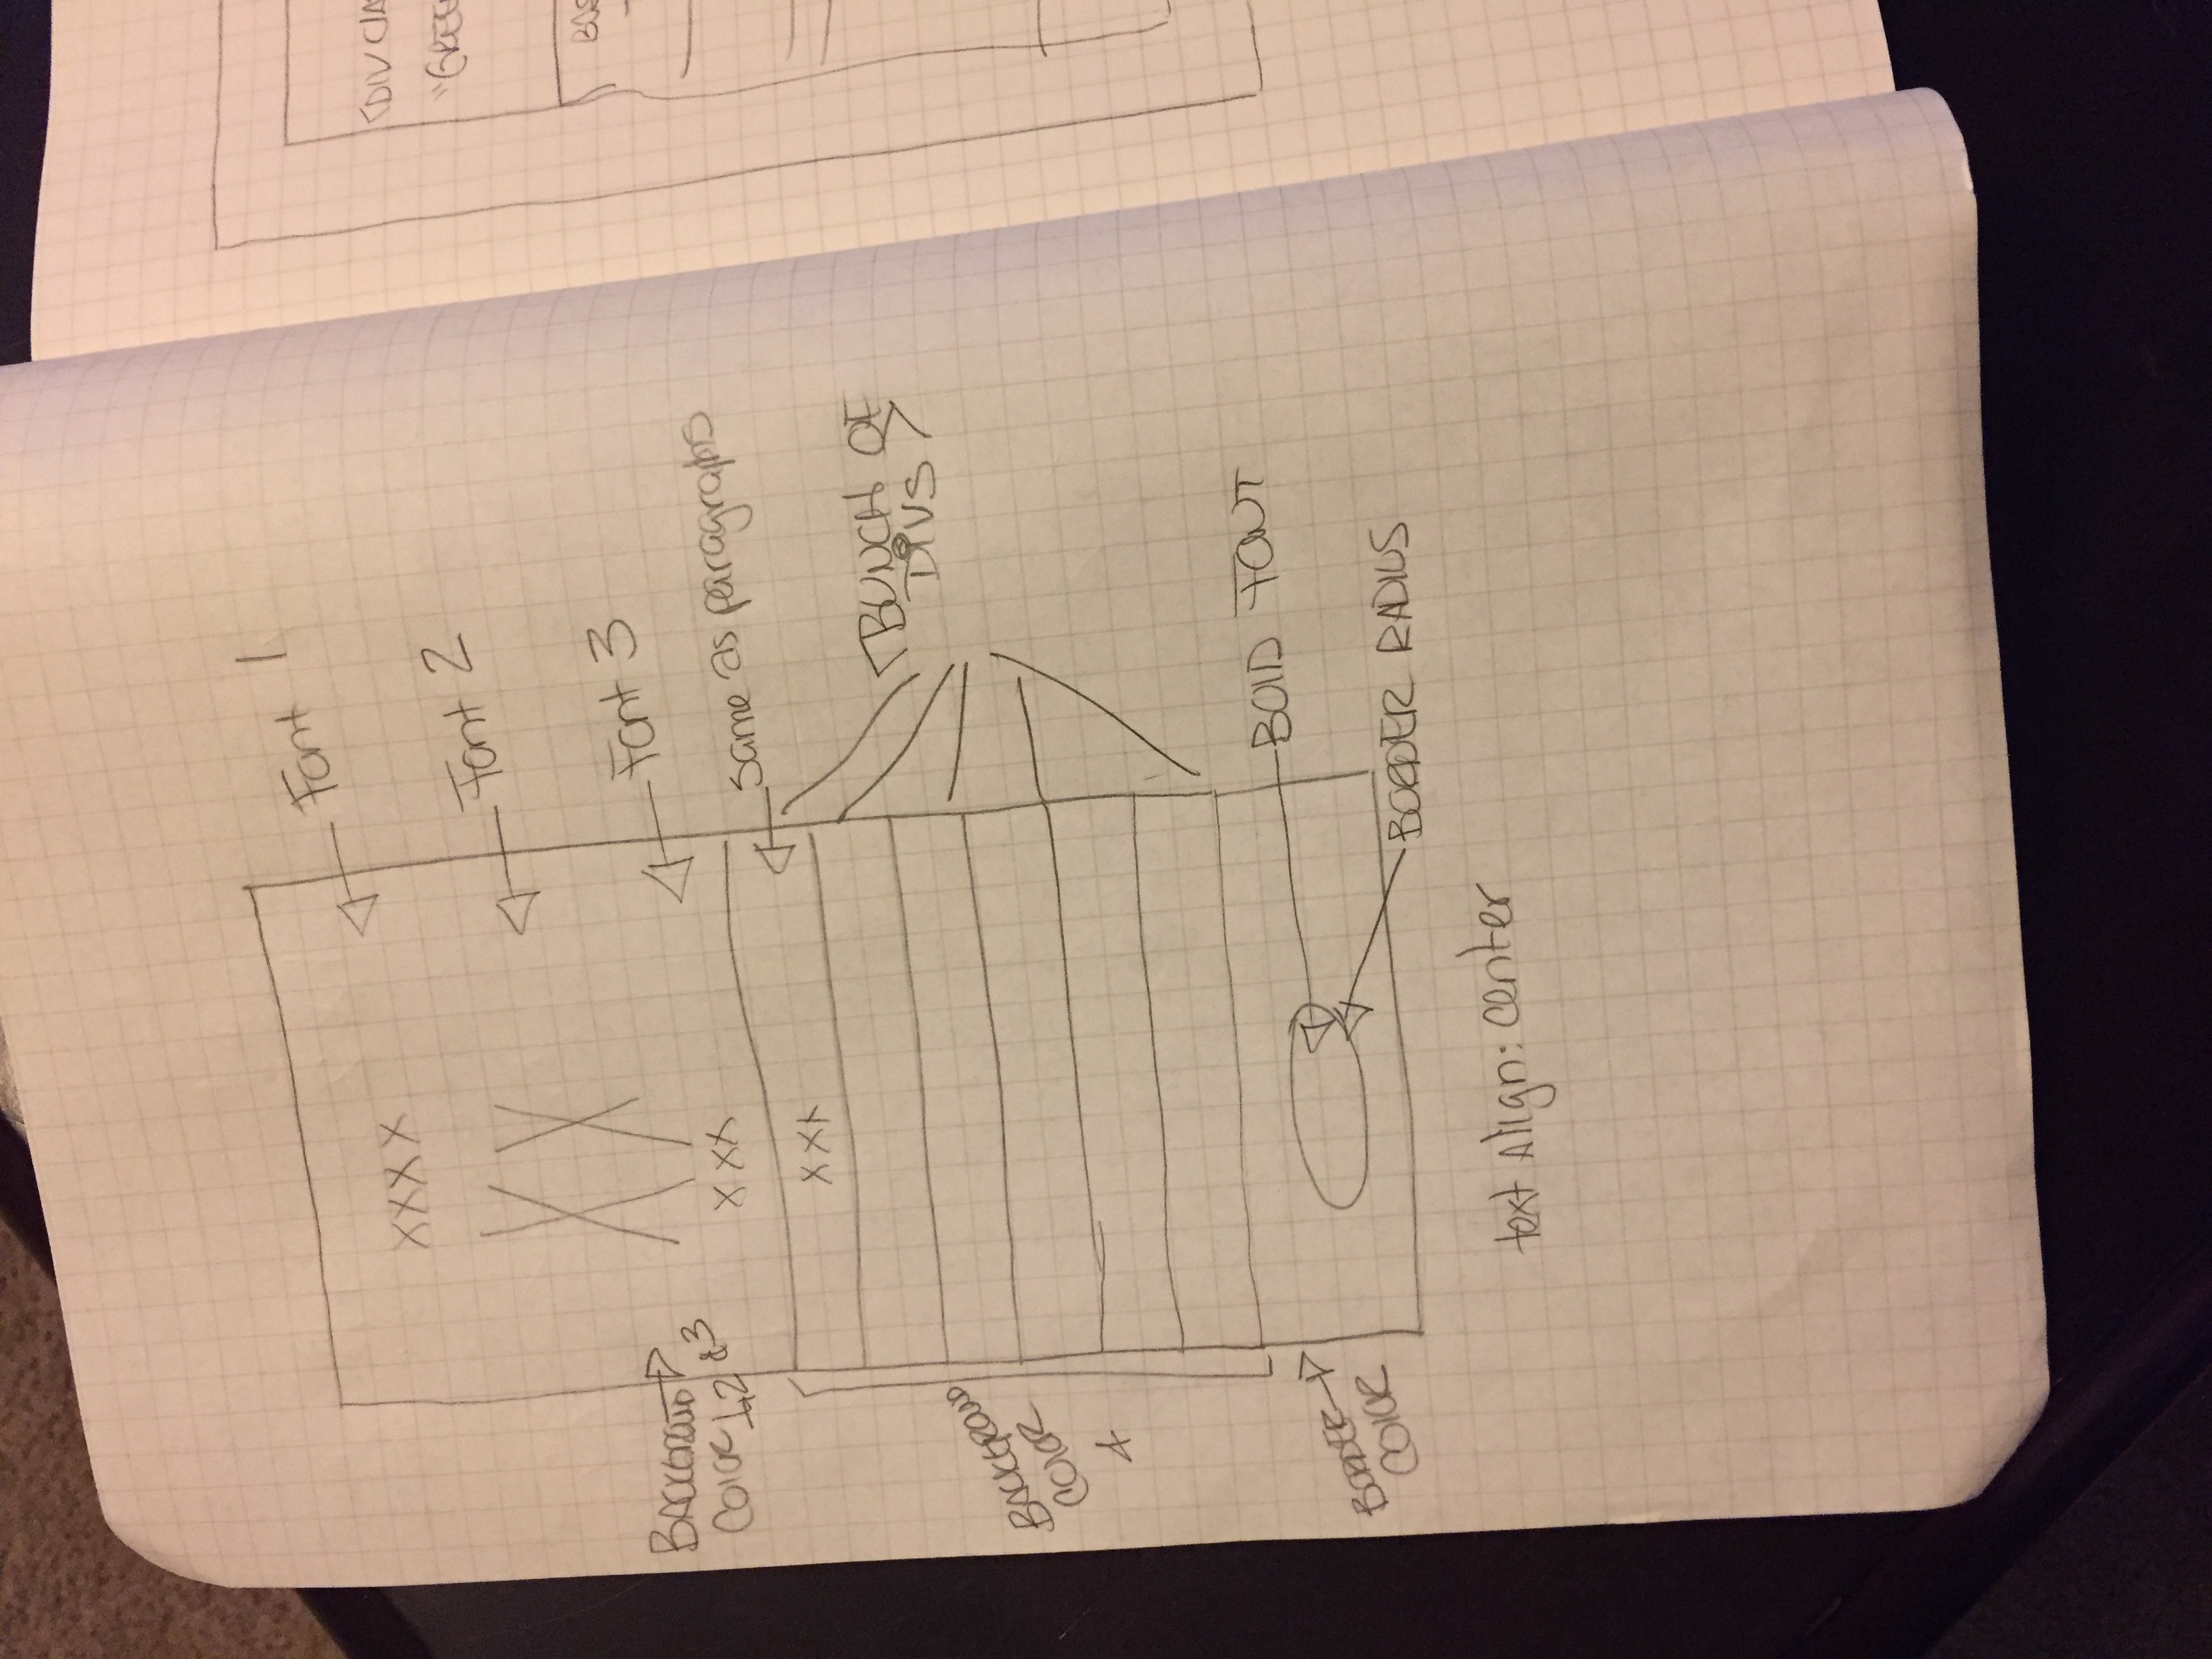 Font 1
XXXX
Font 2
XX
Font 3
BACKGROUND
COLOR 1,2 &3
XXX
Same as paragraphs
XXX
<BUNCH OF
DIVS>
BACKGROUND
COLOR
4
BOLD FONT
BORDER
COLOR
BORDER RADIUS
text Align: center
<DIV CLA
"GREE